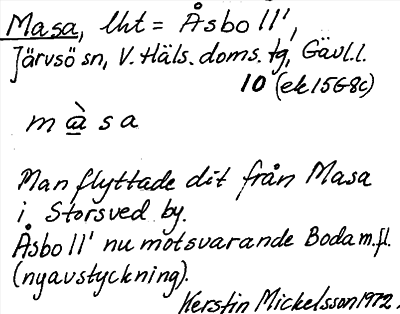 Masa, lht = Åsbo 11¹,
Järvsö sn, V. Häls. doms. tg, Gävl. l.
10 (ek 15G8c)
m à s a
Man flyttade dit från Masa
i Storsved by.
Åsbo 11¹ nu motsvarande Boda m.fl.
(nyavstyckning).
Kerstin Mickelsson 1972.